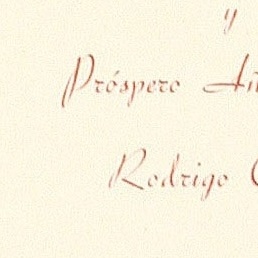 y
Próspero Añ
Rodrigo